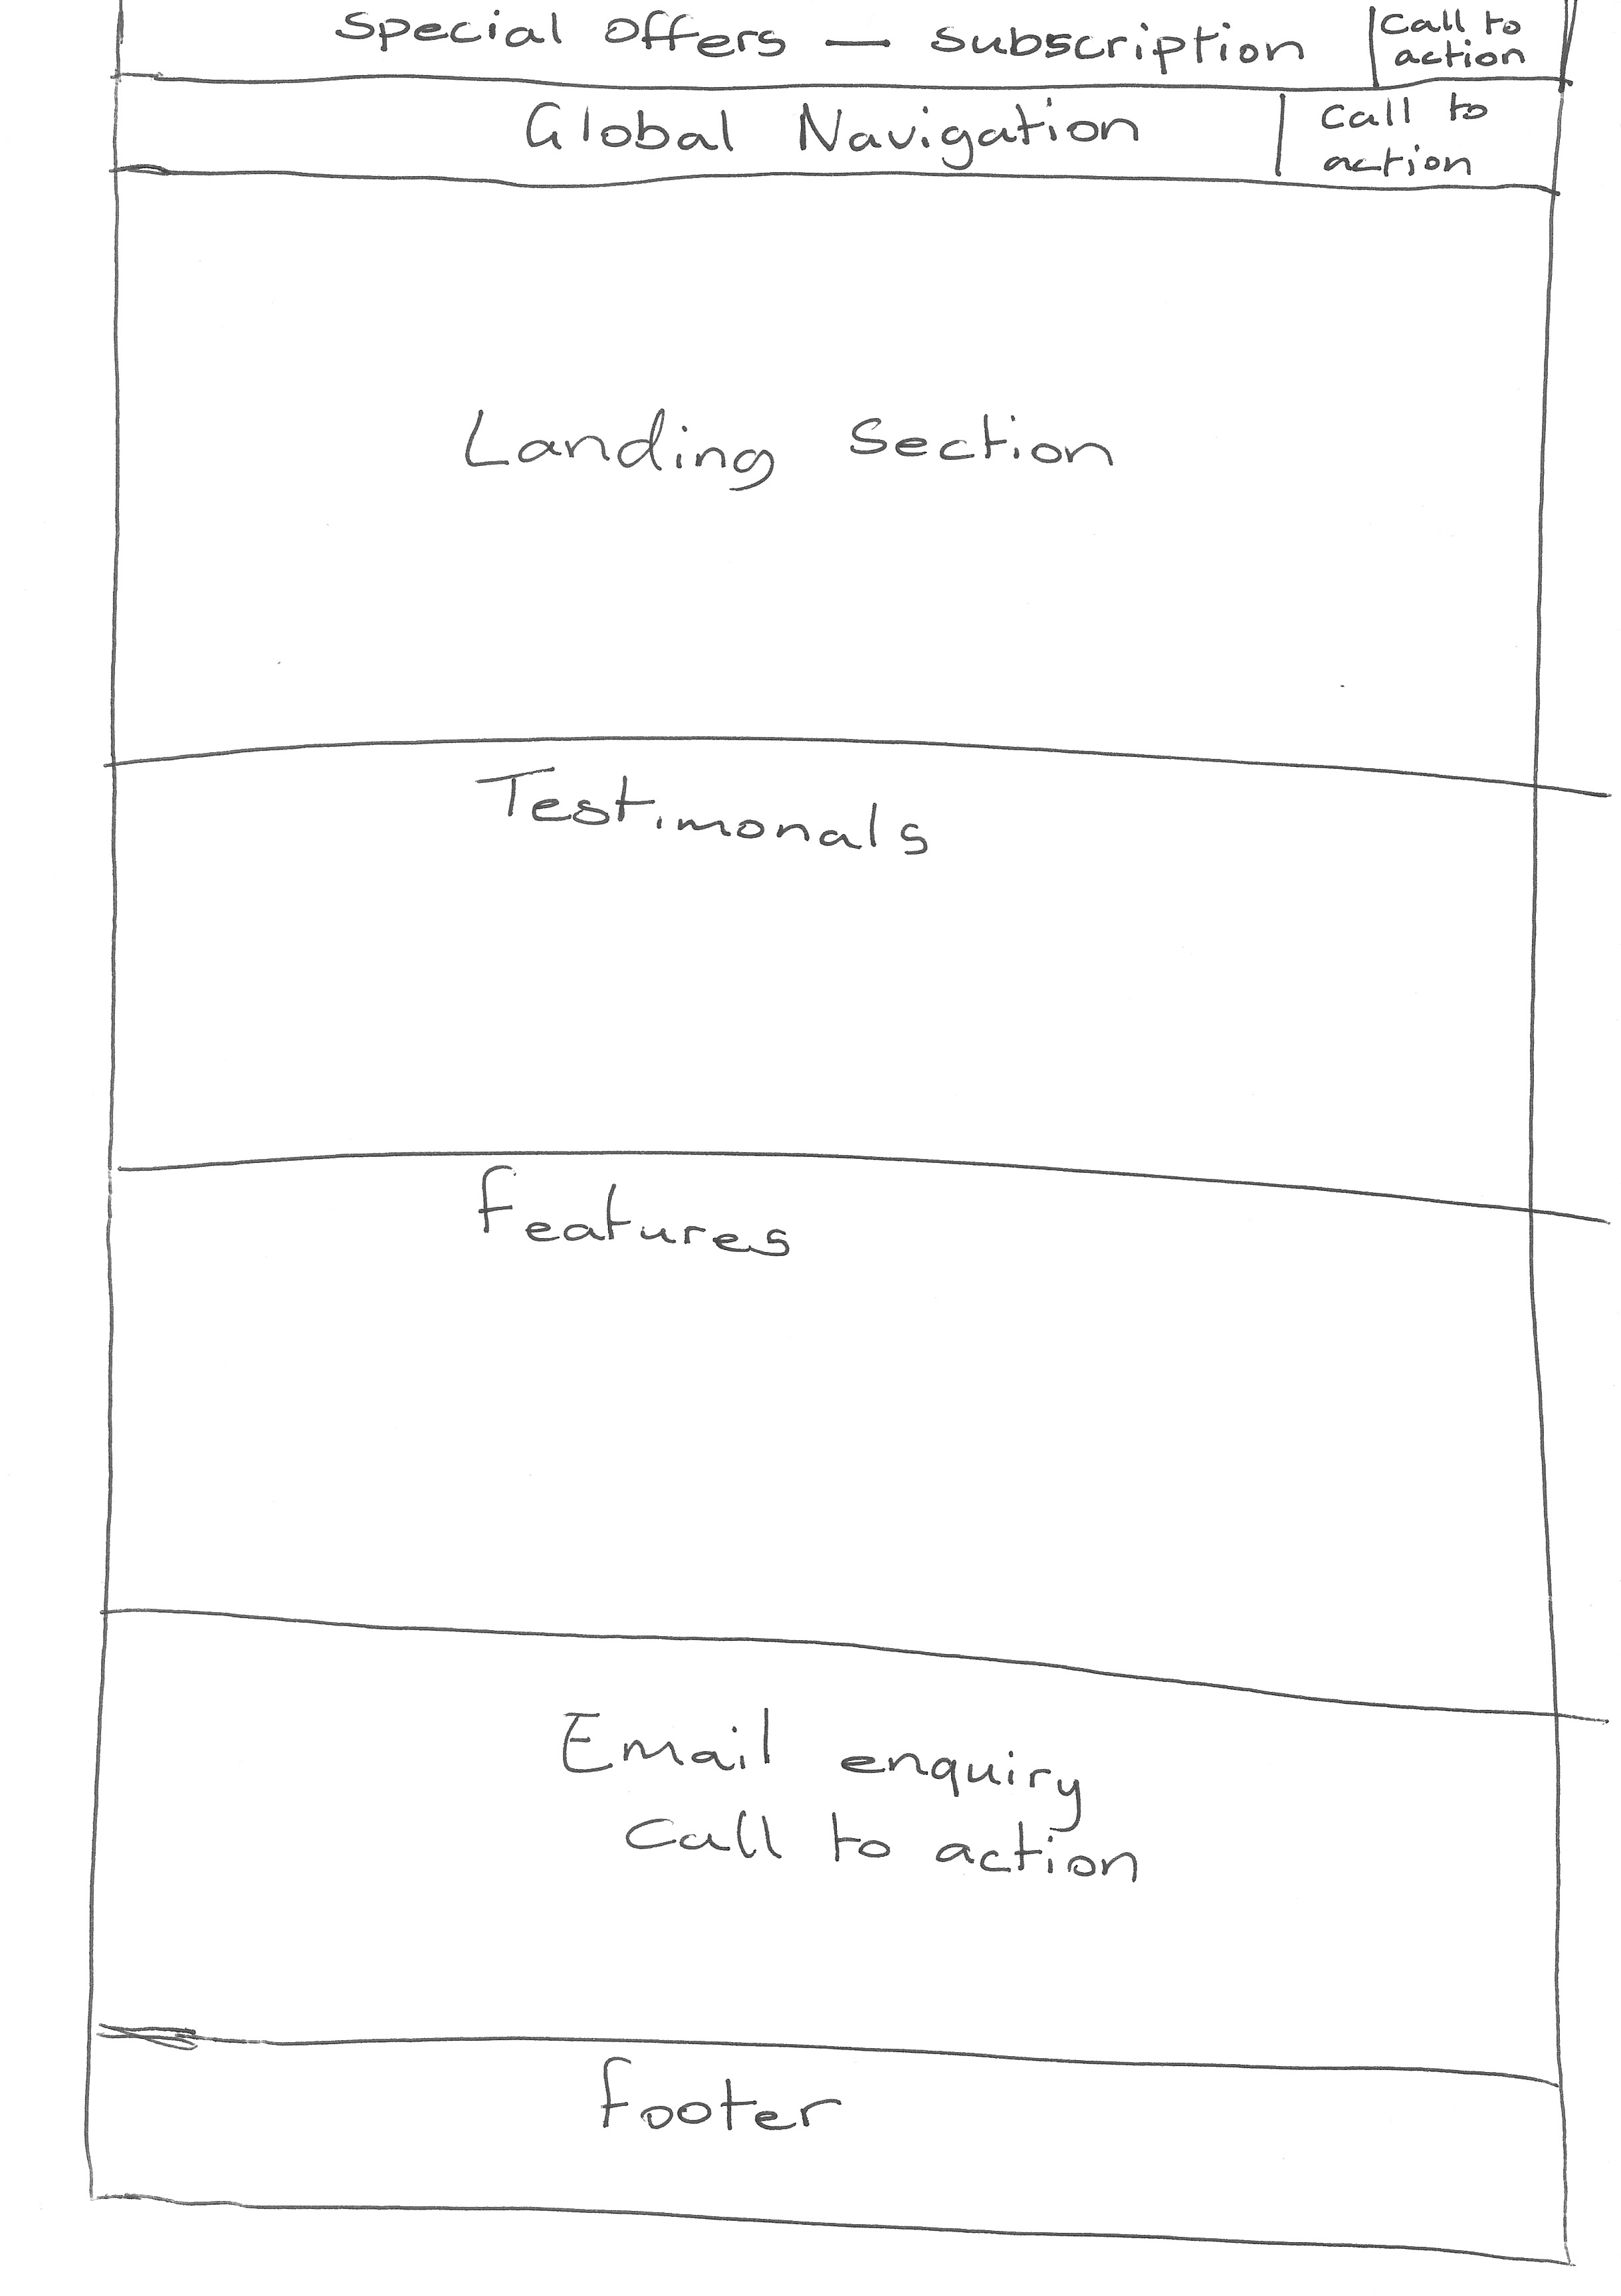 Special Offers — subscription
Call to
action
Global Navigation
Call to
action
Landing Section
Testimonals
Features
Email enquiry
Call to action
Footer